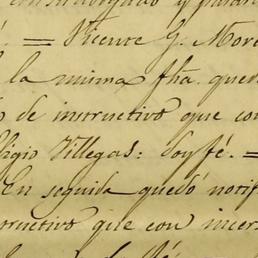 = Vicente G. More
la misma fha. qued
o de instructivo que con
ligio Villegas: doy fé. =
En seguida quedó notif
structivo que con incer